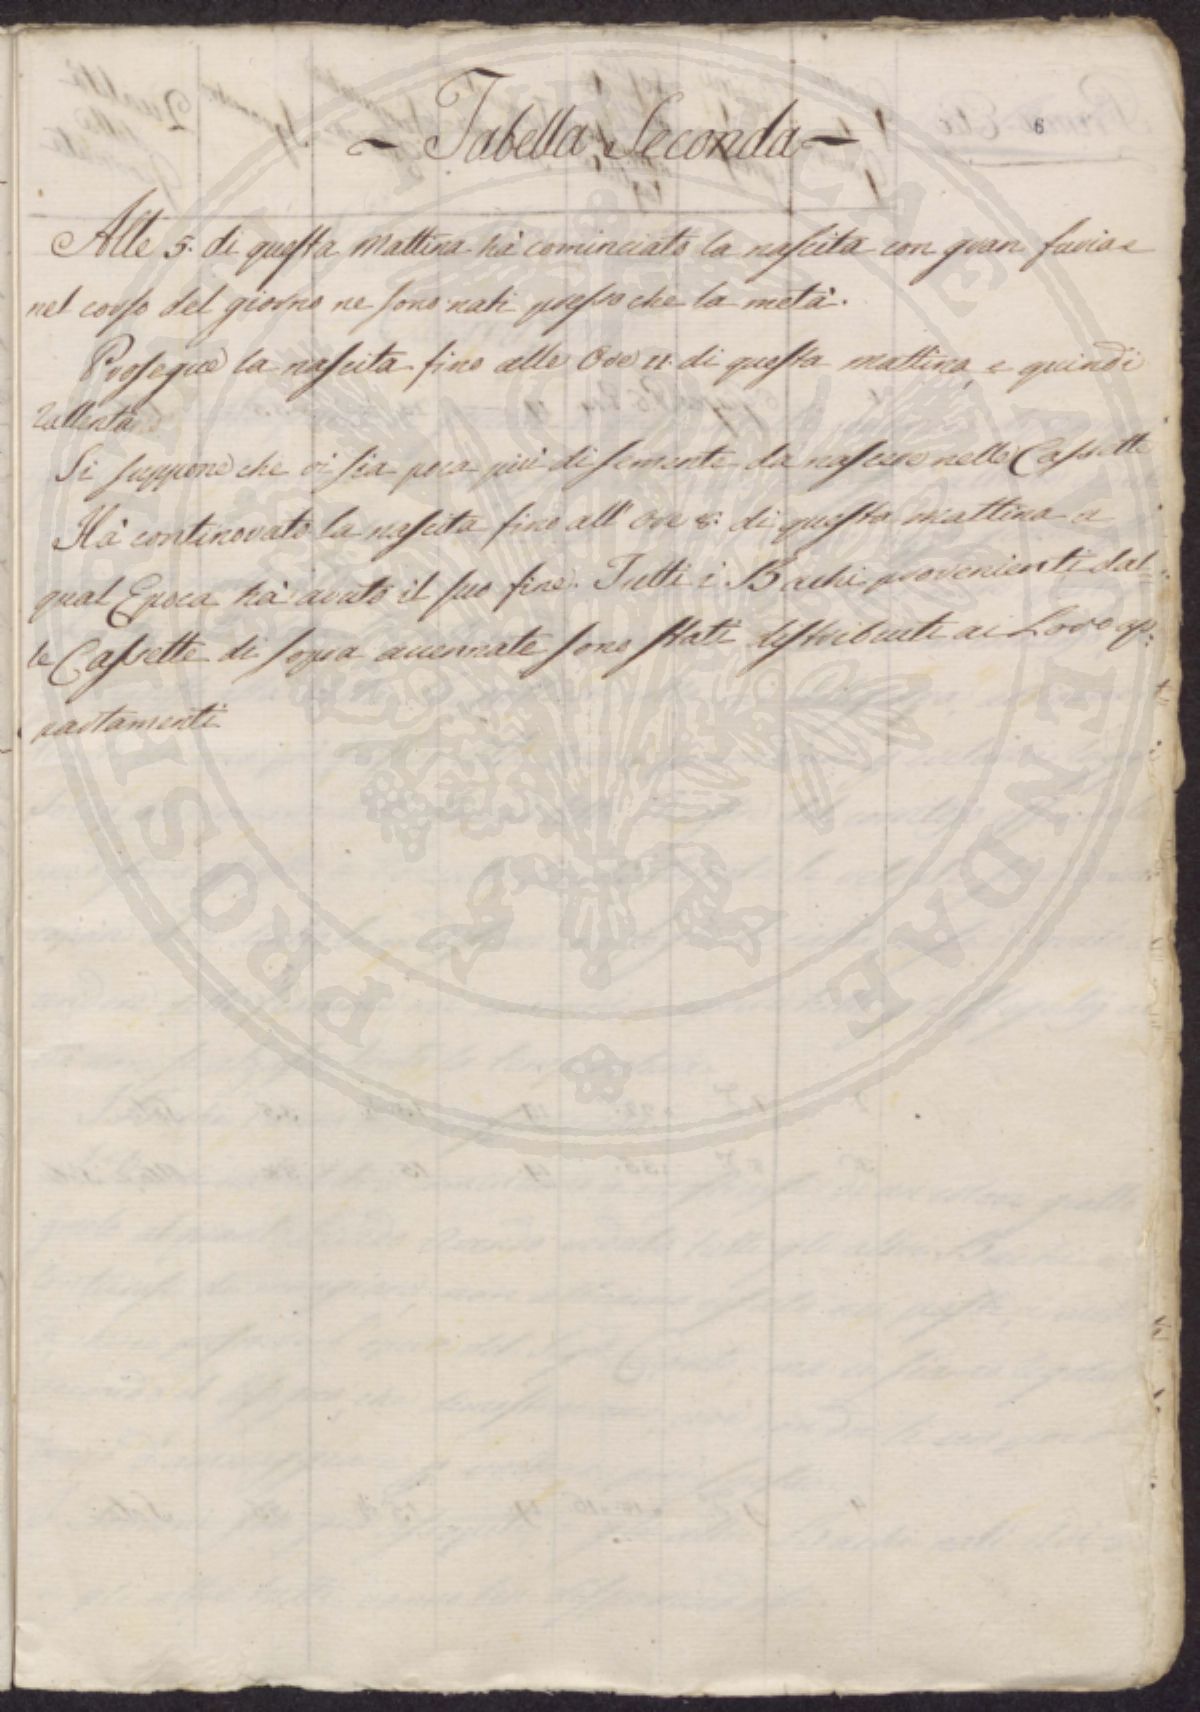 6
~ Tabella Seconda ~
Alle 5. di questa mattina hà cominciato la nascita con gran furia e
nel corso del giorno ne sono nati presso che la metà.
Prosegue la nascita fino alle Ore 11. di questa mattina, e quindi
rallenta
Si suppone che vi sia poca più di semente da nascere nelle Cassette
Hà continovato la nascita fino all' Ore 8. di questa mattina a
qual Epoca hà avuto il suo fine. Tutti i Bachi provenienti dal=
le Cassette di sopra accennate sono stati distribuiti ai Loro ap=
partamenti
PROSPERITATI PUBLICAE AUGENDAE